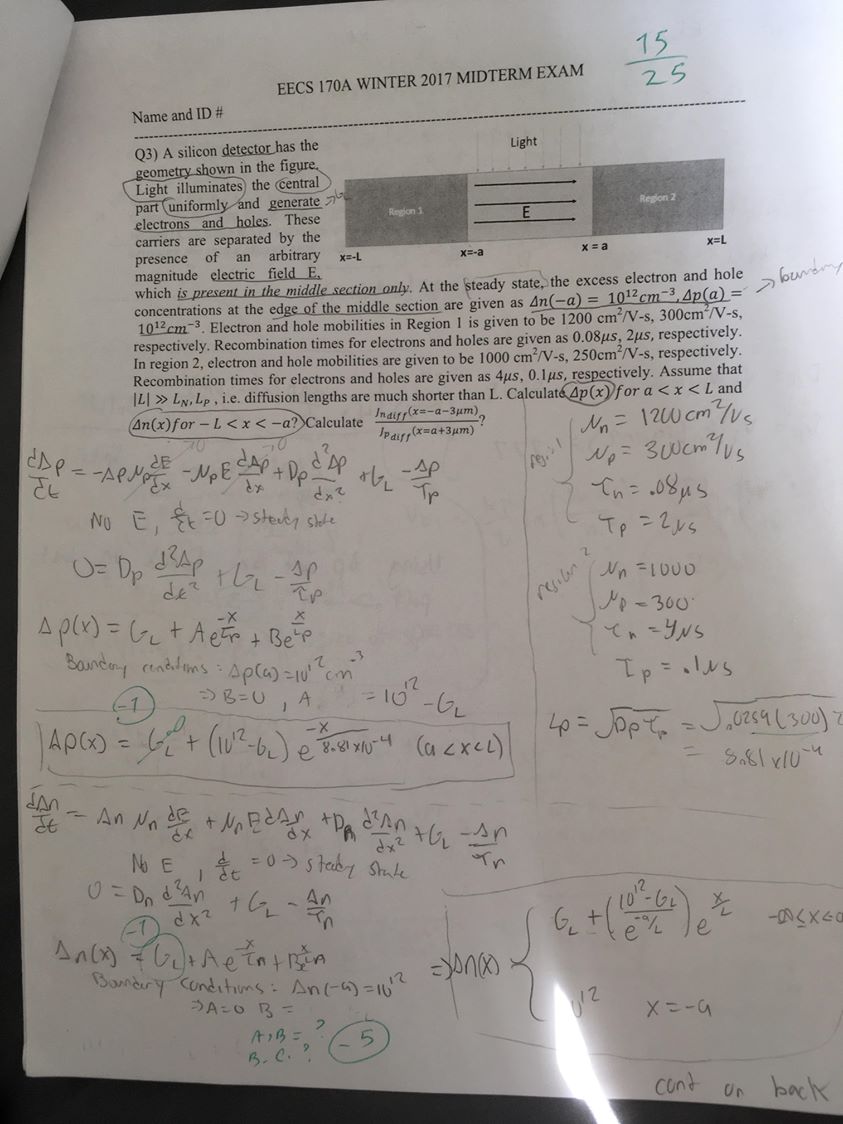 15
25
EECS 170A WINTER 2017 MIDTERM EXAM
Name and ID #
Q3) A silicon detector has the
geometry shown in the figure.
Light illuminates the central
part uniformly and generate
electrons and holes. These
carriers are separated by the
presence of an arbitrary
magnitude electric field E,
Light
Region 1
E
Region 2
x=-L
x=-a
x = a
x=L
which is present in the middle section only. At the steady state, the excess electron and hole
→ boundary
concentrations at the edge of the middle section are given as Δn(−a) = 10¹²cm⁻³, Δp(a) =
10¹²cm⁻³. Electron and hole mobilities in Region 1 is given to be 1200 cm²/V-s, 300cm²/V-s,
respectively. Recombination times for electrons and holes are given as 0.08μs, 2μs, respectively.
In region 2, electron and hole mobilities are given to be 1000 cm²/V-s, 250cm²/V-s, respectively.
Recombination times for electrons and holes are given as 4μs, 0.1μs, respectively. Assume that
|L| ≫ L_N, L_P , i.e. diffusion lengths are much shorter than L. Calculate Δp(x) for a < x < L and
Δn(x)for − L < x < −a? Calculate J_ndiff(x=−a−3μm)/J_pdiff(x=a+3μm)?
dΔp/dt = -Δp μp dE/dx - μp E dΔp/dx + Dp d²Δp/dx² + GL - Δp/τp
No E, d/dt = 0 → steady state
0 = Dp d²Δp/dx² + GL - Δp/τp
Δp(x) = GL + A e^(-x/Lp) + B e^(x/Lp)
Boundary conditions: Δp(a) = 10¹² cm⁻³
⇒ B=0 , A = 10¹² - GL
-1
Δp(x) = GL + (10¹² - GL) e^(-x/8.81x10⁻⁴) (a<x<L)
0
region 1
μn = 1200 cm²/Vs
μp = 300 cm²/Vs
τn = .08μs
τp = 2μs
region 2
μn = 1000
μp = 300
τn = 4μs
τp = .1μs
Lp = √Dp τp = √.0259(300)
= 8.81 x10⁻⁴
dΔn/dt = Δn μn dE/dx + μn E dΔn/dx + Dn d²Δn/dx² + GL - Δn/τn
No E , d/dt = 0 → steady state
0 = Dn d²Δn/dx² + GL - Δn/τn
-1
Δn(x) = GL + A e^(-x/Ln) + B e^(x/Ln)
Boundary conditions: Δn(-a) = 10¹²
⇒ A=0 B =
A, B = ?
B.C. ?
-5
⇒ Δn(x) { GL + ((10¹² - GL)/e^(-a/L)) e^(x/L)
x = -a
cont on back